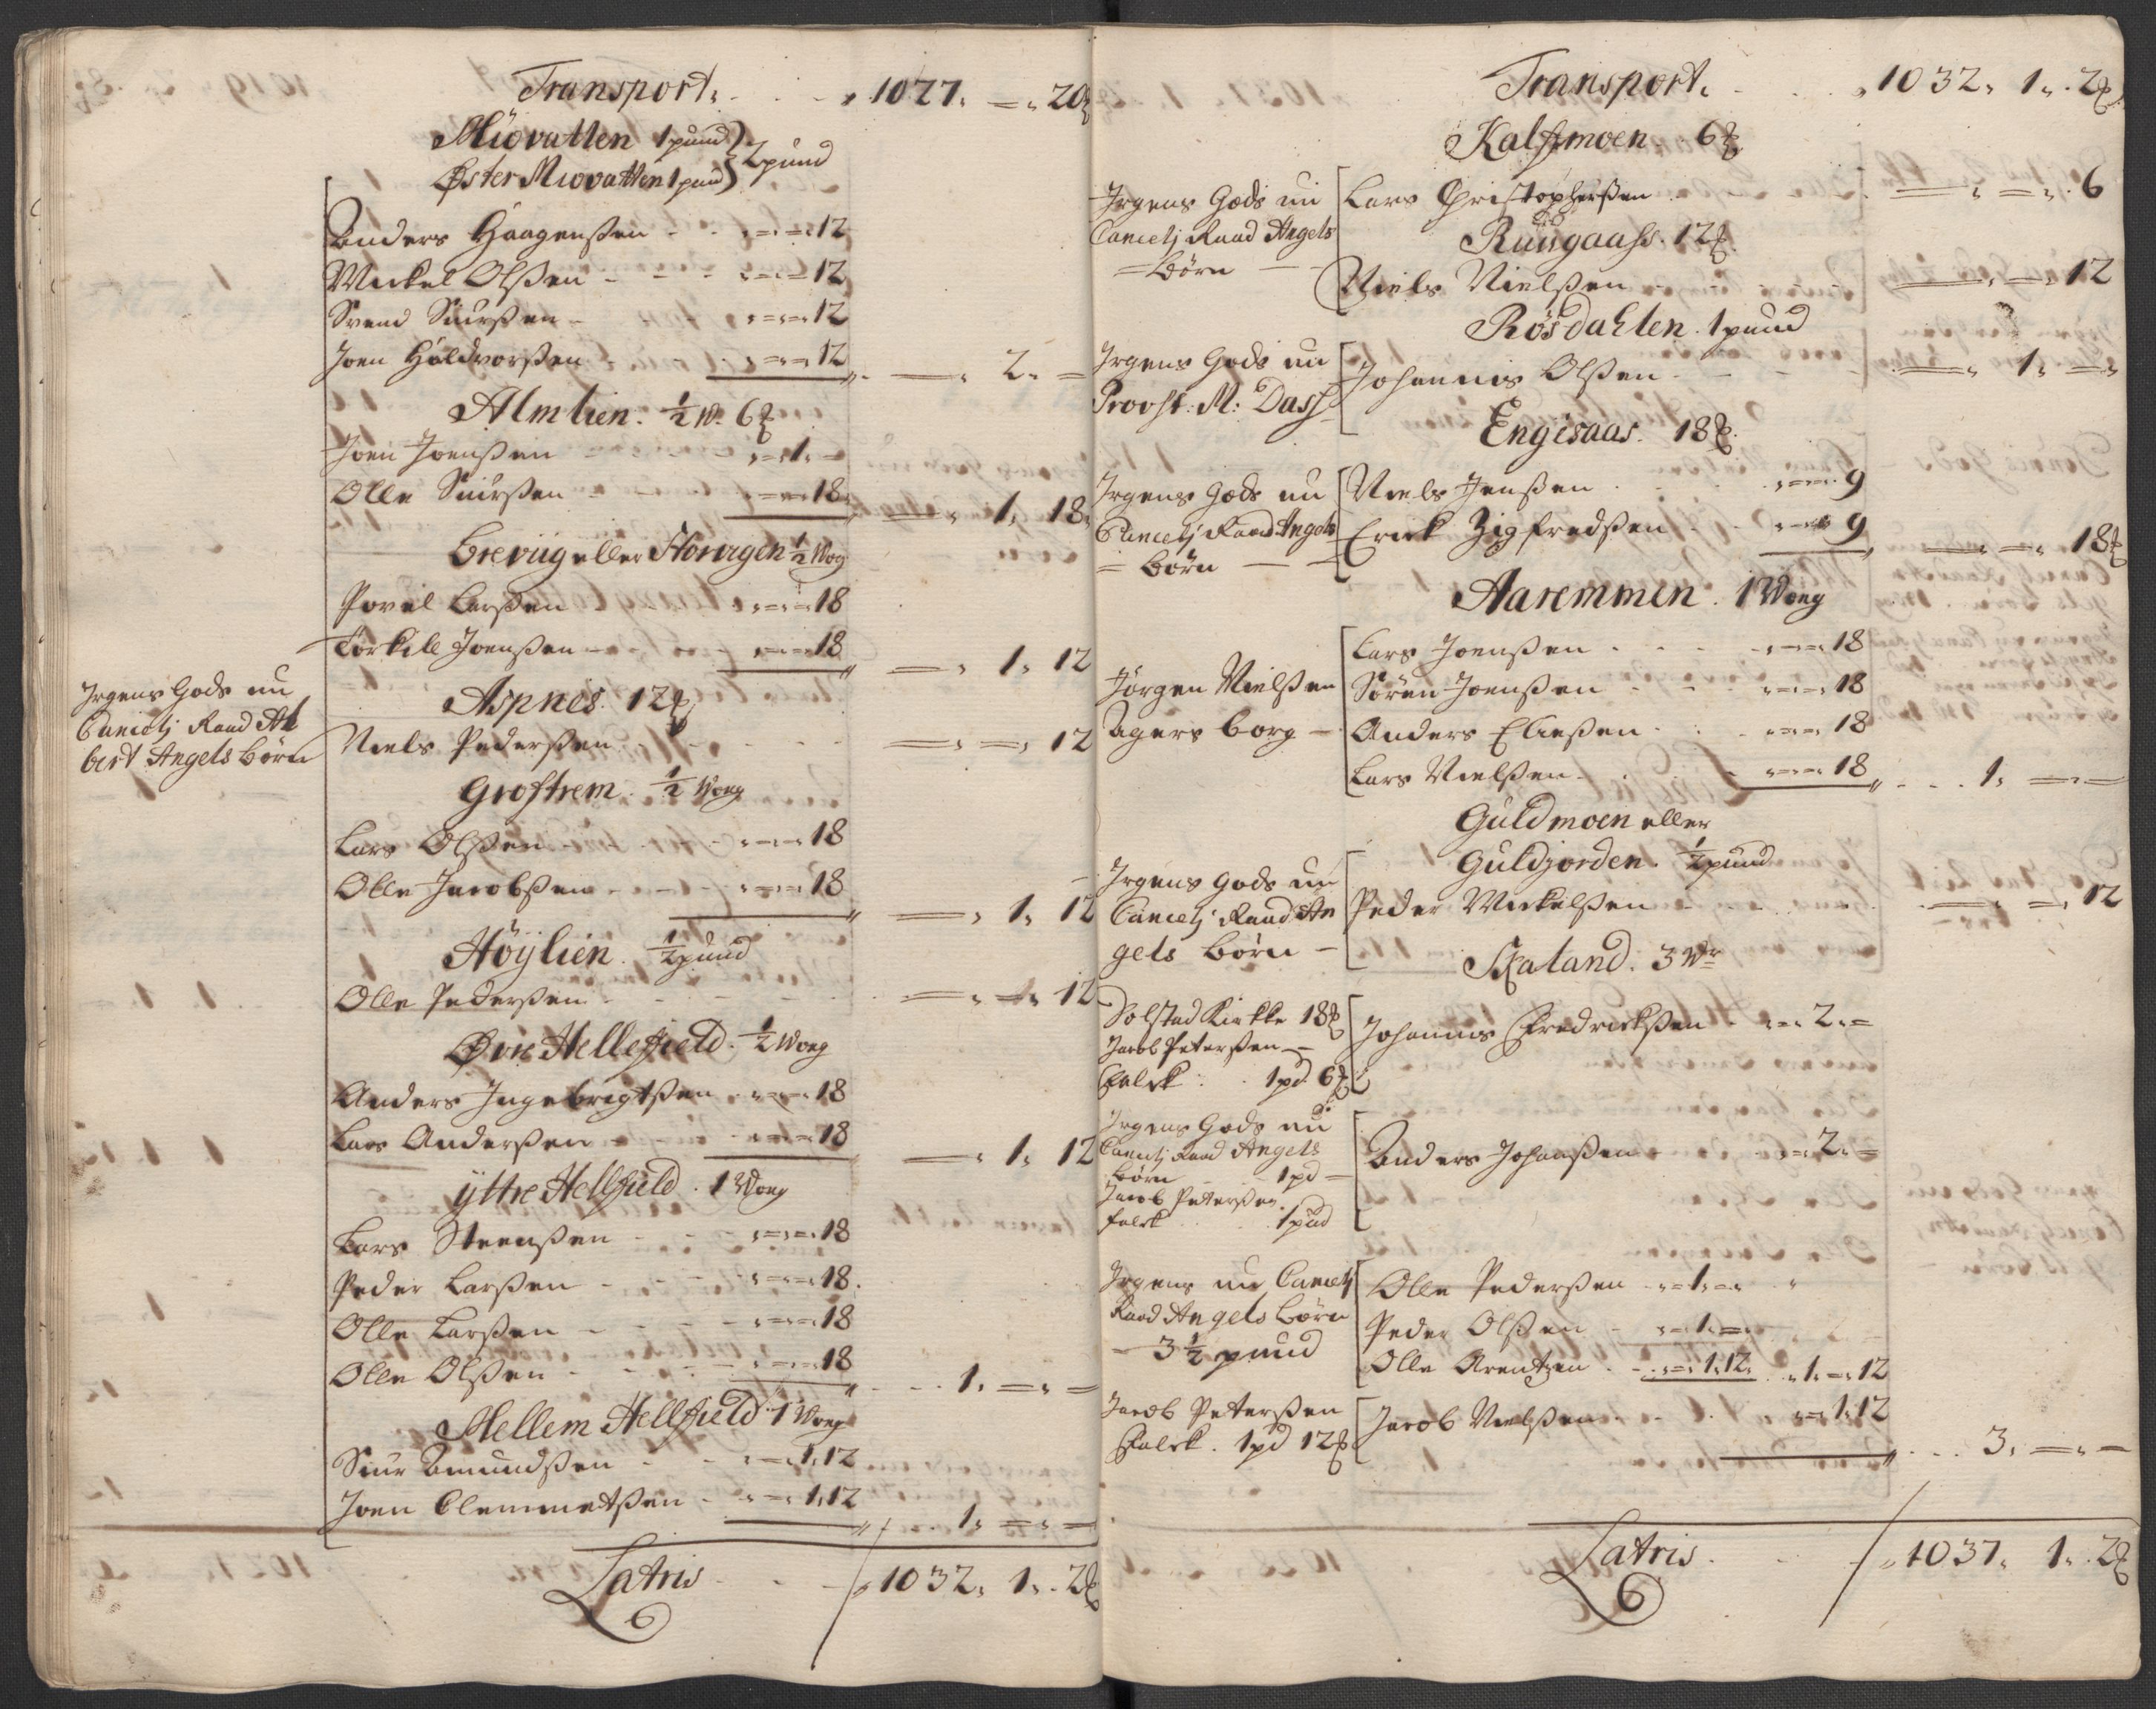 Transport. 1027. =. 20
Miovatten 1 pund
Øster Miovatten 1 pund } 2 pund
Anders Haagenßen =.=. 12
Mickel Olßen =.=. 12
Svend Siurßen =.=. 12
Joen Haldvorßen =.=. 12
=. 2. =
Almlien. ½ W. 6
Joen Joenßen =. 1. =
Olle Siurßen =.=. 18
=. 1. 18
Breviig eller Storvigen ½ Wog
Povel Larßen =.=. 18
Torkill Joenßen =.=. 18
=. 1. 12
Jrgens Gods nu
Cancelj Raad Al
bert Angels Børn
Aspnes. 12
Niels Pederßen =.=. 12
Groftrem. ½ Wog
Lars Olßen =.=. 18
Olle Jacobßen =.=. 18
=. 1. 12
Höÿlien. ½ pund
Olle Pederßen =.=. 12
Øvre Hellefield. ½ Wog
Anders Ingebrigtßen =.=. 18
Lars Anderßen =.=. 18
=. 1. 12
ÿttre Hellfield. 1 Wog
Lars Steenßen =.=. 18
Peder Larßen =.=. 18.
Olle Larßen =.=. 18
Olle Olßen =.=. 18
1. =. =
Mellem Hellfield 1 Wog
Siur Amundßen =. 1. 12
Joen Clemmetßen =. 1. 12
1. =. =
Latris 1032. 1. 2
Transport. 1032. 1. 2
Kalffmoen 6
Jrgens Gods nu
Cancelj Raad Angels
Børn
Lars Christopherßen =. =. 6
Ruusgaass. 12
Niels Nielßen =. =. 12
Røsdahlen. 1 pund
Jrgens Gods nu
Provst: M: Dass
Johannis Olßen =. 1. =
Engesaas. 18
Jrgens Gods nu
Cancelj Raad Angels
Børn
Niels Jenßen =.=. 9
Erick Zigfredßen =.=. 9
=. =. 18
Aaremmen. 1 Wog
Jørgen Nielßen
Agers borg
Lars Joenßen =.=. 18
Søren Joenßen =.=. 18
Anders Eließen =.=. 18
Lars Nielßen =.=. 18
1. =. =
Guldmoen eller
Guldjorden. ½ pund
Jrgens Gods nu
Cancelj Raad An
gels Børn
Peder Mickelßen =. =. 12
Skaland. 3 Wr
Dolstad Kirkke 18
Jacob Peterßen
Falck 1 pd 6
Johannis Fredrickßen =. 2. =
Jrgens Gods nu
Cancelj Raad Angels
Børn 1 pd
Jacob Peterßen
Falck 1 pud
Anders Johanßen =. 2. =
Jrgens nu Cancelj
Raad Angels Børn
3½ pund
Olle Pederßen =. 1. =
Peder Olßen =. 1. =
Olle Arentzen =. 1. 12. 1. =. 12
Jacob Peterßen
Falck. 1 pd 12
Jacob Nielßen =. 1. 12
3. =. =
Latris. 1037. 1. 2